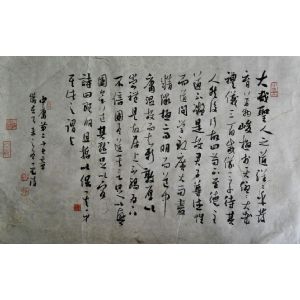 大哉聖人之道洋洋乎發
育萬物峻極于天優優大哉
禮儀三百威儀三千待其
人然後行故曰苟不至德至
道不凝焉故君子尊德性
而道問學致廣大而盡
精微極高明而道中
庸溫故而知新敦厚以
崇禮是故居上不驕為下
不倍國有道其言足以興
國無道其默足以容
詩曰既明且哲以保其身
其此之謂與
中庸第二十七章